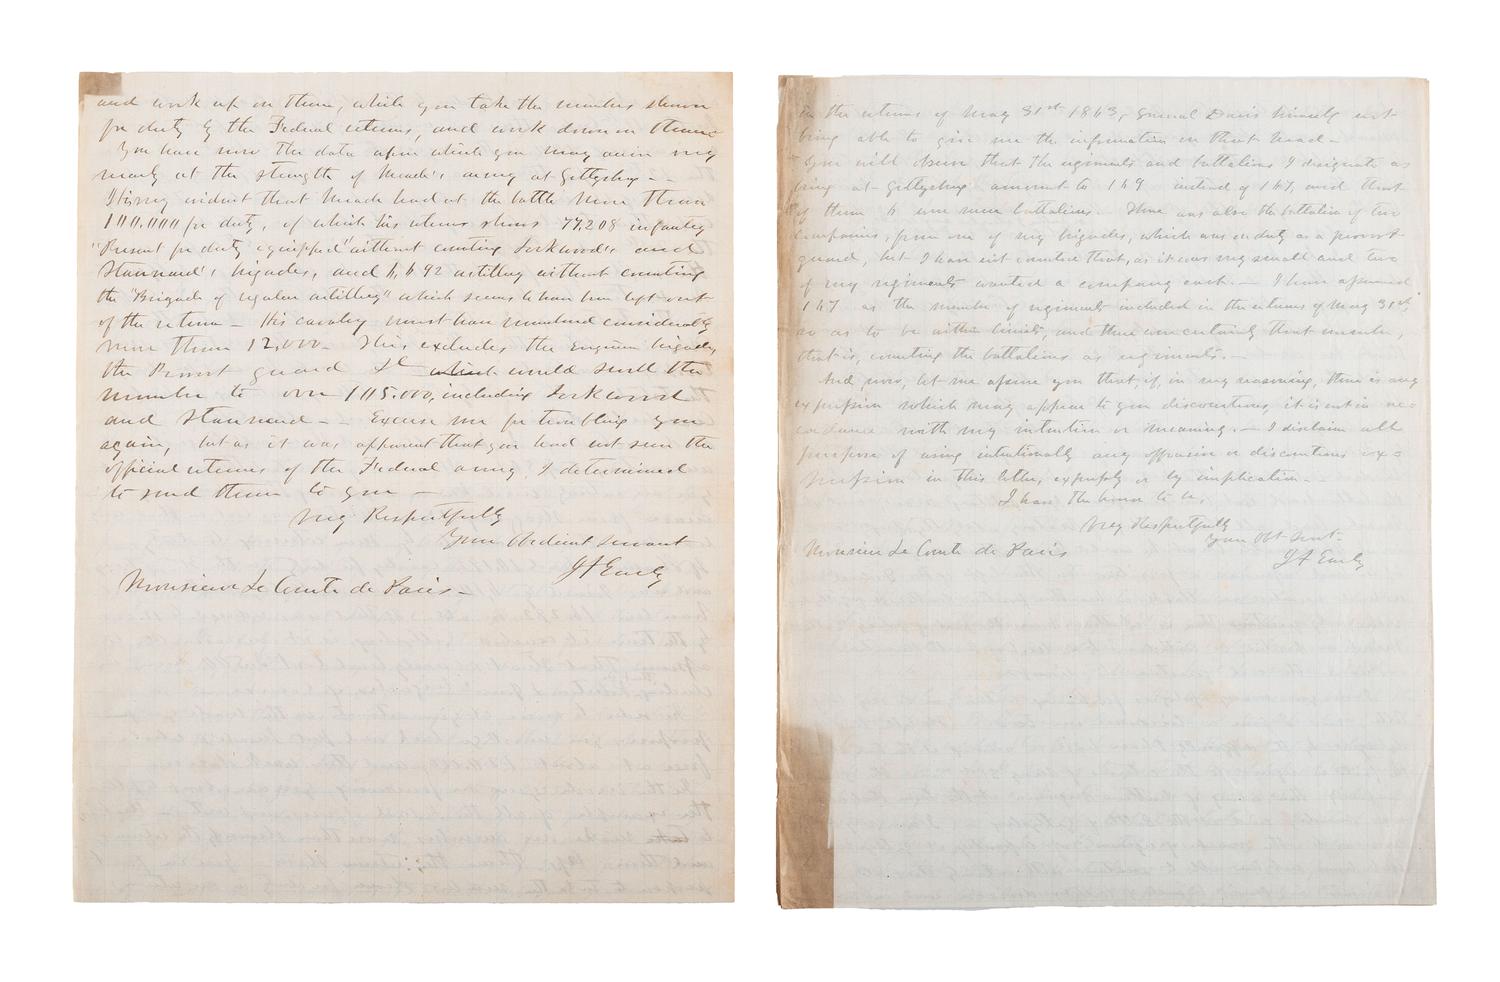 and work up on them, while you take the number shown
for duty by the Federal returns, and work down on them
You have now the data upon which you may arrive very
nearly at the strength of Meade's army at Gettysburg --
It is very evident that Meade had at the battle more than
100,000 for duty, of which his returns shows 77,208 infantry
"Present for duty equipped" without counting Lockwood's and
Stannard's brigades, and 6,692 artillery without counting
the "Brigade of regular artillery" which seems to have been left out
of the return - His cavalry must have numbered considerably
more than 12,000 - This excludes the Engineer brigade,
the Provost guard &c which would swell the
number to over 105,000, including Lockwood
and Stannard -- Excuse me for troubling you
again, but as it was apparent that you had not seen the
official returns of the Federal army, I determined
to send them to you -
Very Respectfully
Your Obedient servant
JA Early
Monsieur Le Comte de Paris -
in the returns of May 31st 1863, General Davis himself not
being able to give me the information on that head -
You will observe that the regiments and battalions I designate as
being at Gettysburg amount to 169 instead of 167, and that
of them 6 were mere battalions - There was also the battalion of two
companies, from one of my brigades, which was on duty as a provost
guard, but I have not counted that, as it was very small and two
of my regiments wanted a company each - I have assumed
167 as the number of regiments included in the returns of May 31st,
so as to be within limits, and there were certainly that number,
that is, counting the battalions as regiments.
And now, let me assure you that, if, in my reasoning, there is any
expression which may appear to you discourteous, it is not in ac=
cordance with my intention or meaning - I disclaim all
purpose of using intentionally any offensive or discourteous ex=
pression in this letter, expressly or by implication -
I have the honor to be,
Very Respectfully
Your Obt Servt
JA Early
Monsieur Le Comte de Paris